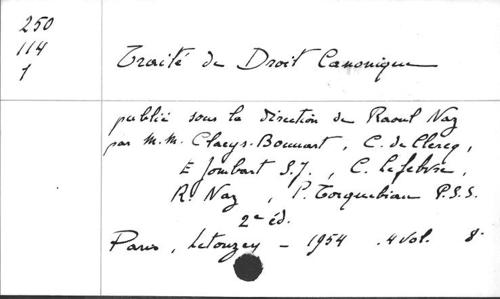 250
114
1
Traité de Droit Canonique
publié sous la direction de Raoul Naz
par M.M. Claeys-Bouuart, C. de Clercq,
E Jombart S.J., C. Lefebvre,
R. Naz, P. Torquebiau P.S.S.
2e éd.
Paris, Letouzey - 1954 . 4 vol. 8°